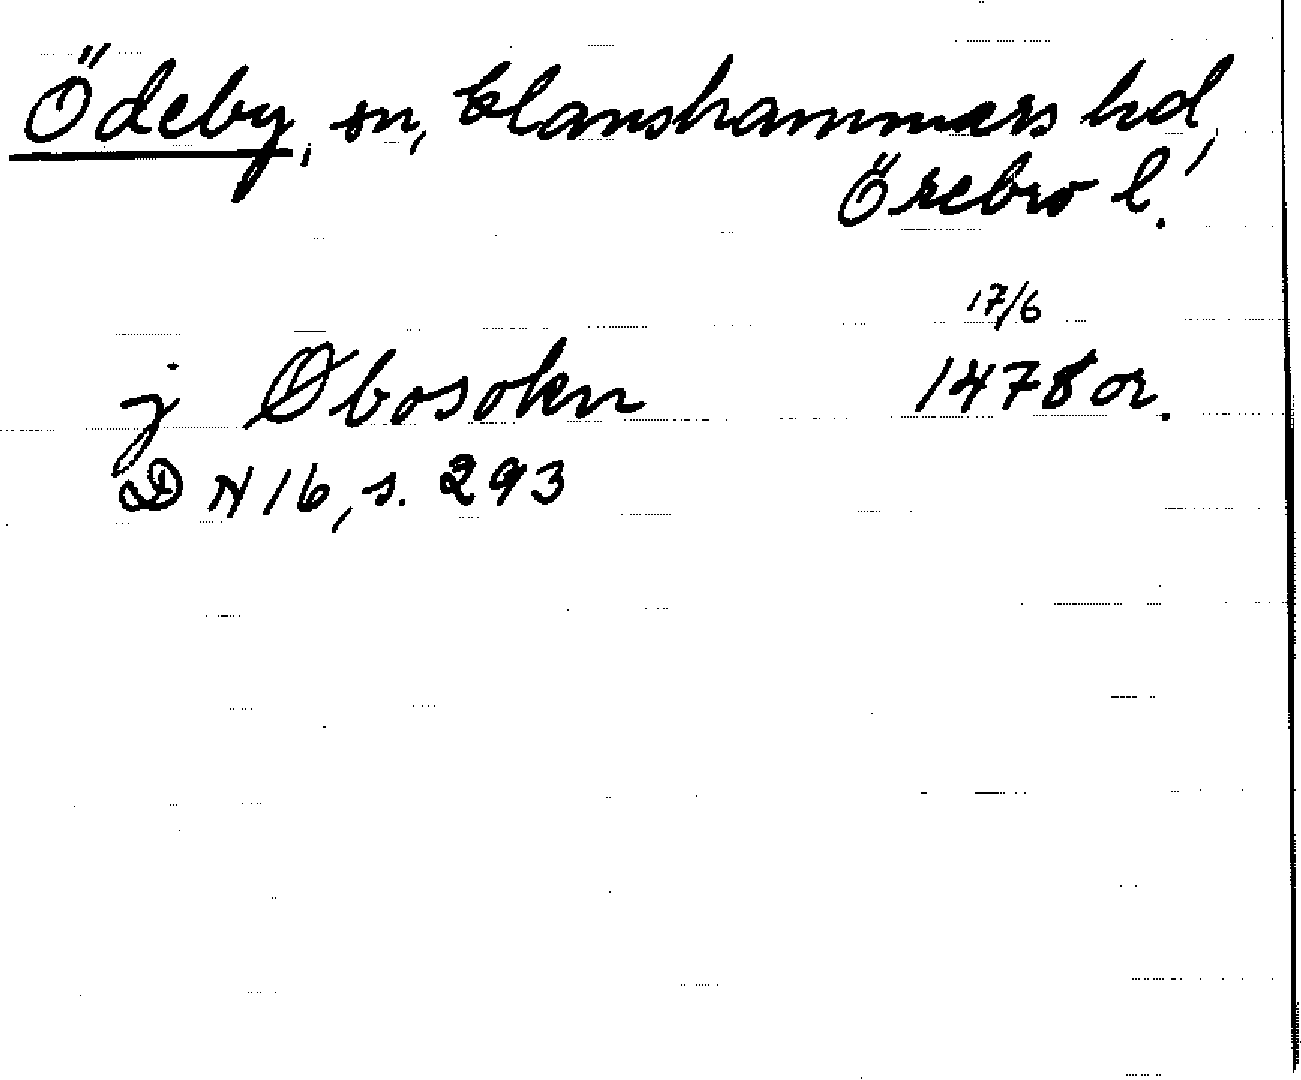 Ödeby, sn, Glanshammars hd,
Örebro l.
17/6
j Øbosokn 1478 or.
DN 16, s. 293